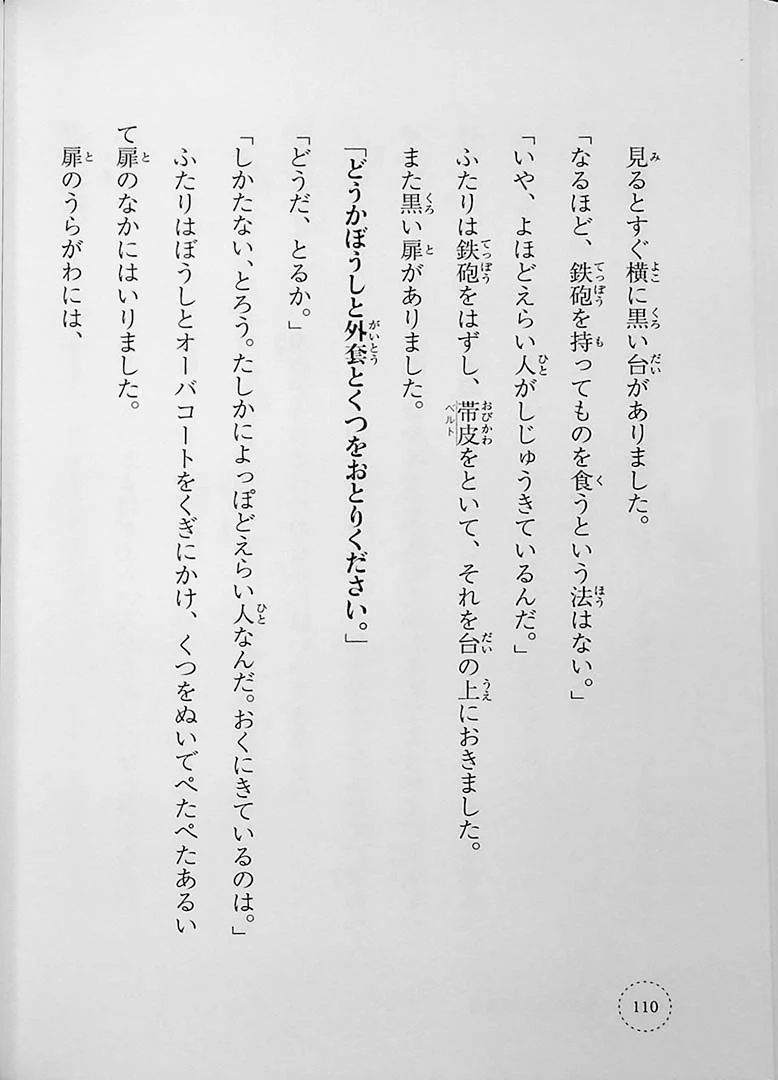 見るとすぐ横に黒い台がありました。
「なるほど、鉄砲を持ってものを食うという法はない。」
「いや、よほどえらい人がしじゅうきているんだ。」
ふたりは鉄砲をはずし、帯皮をといて、それを台の上におきました。
また黒い扉がありました。
「どうかぼうしと外套とくつをおとりください。」
「どうだ、とるか。」
「しかたない、とろう。たしかによっぽどえらい人なんだ。おくにきているのは。」
ふたりはぼうしとオーバコートをくぎにかけ、くつをぬいでぺたぺたあるい
て扉のなかにはいりました。
扉のうらがわには、
110